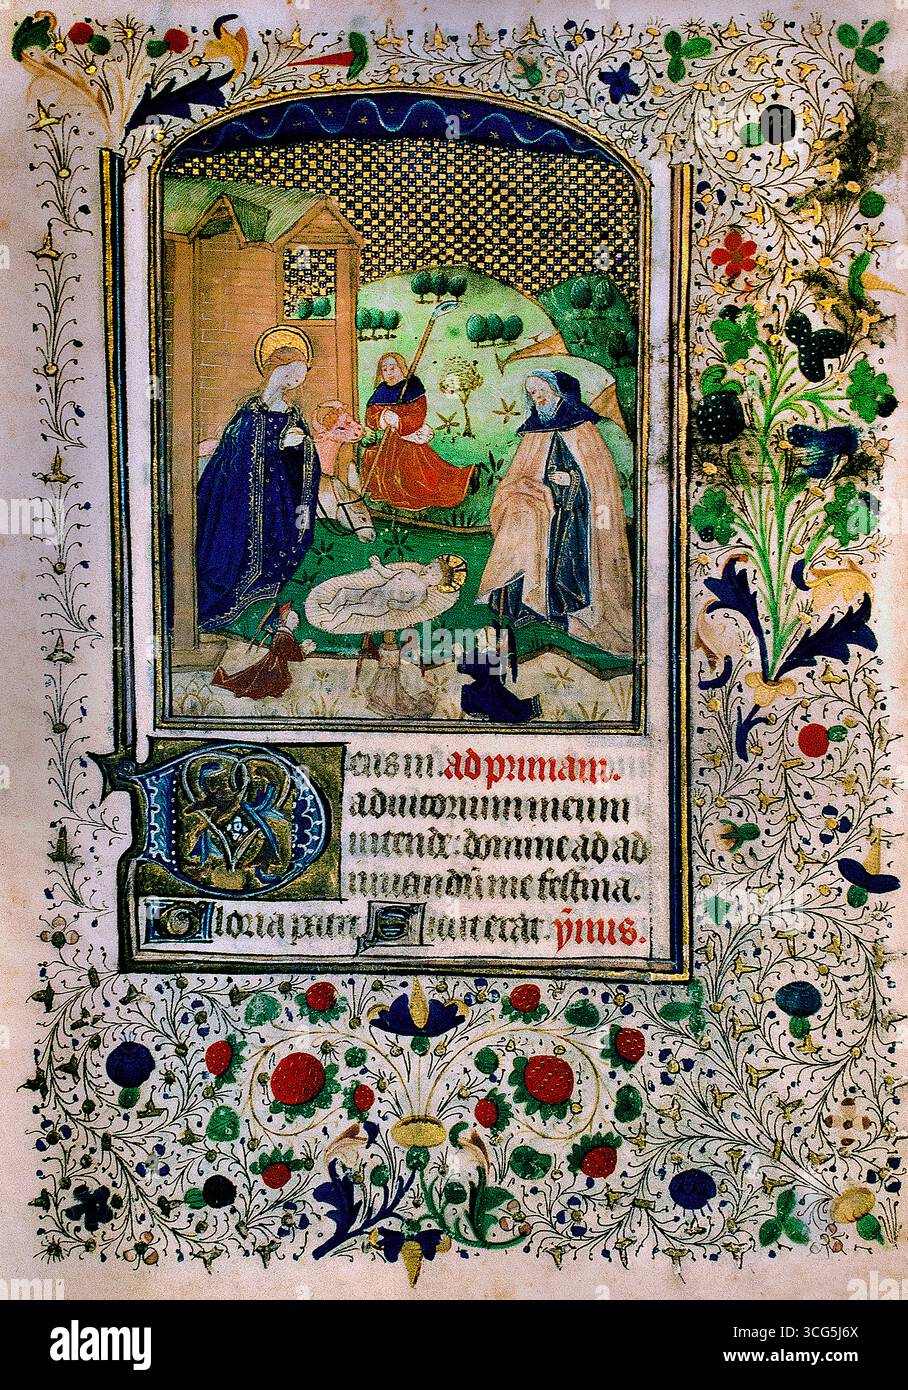 Deus in. ad primam.
adiutorium meum
intende: domine ad ad
iuuandū me festina.
Gloria patri Sicut erat. ymus.
alamy
Image ID: 3CG5J6X
www.alamy.com